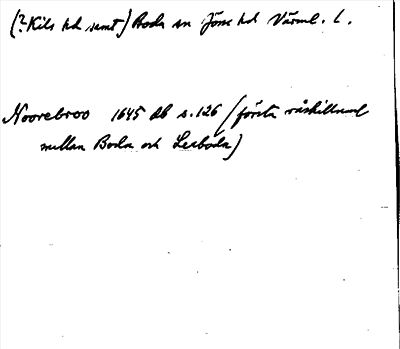 (?Kils hd samt) Boda sn Jösse hd Värml. l.
Noorebroo 1645 db s. 126 (första råskillnad
mellan Boda och Lerboda)